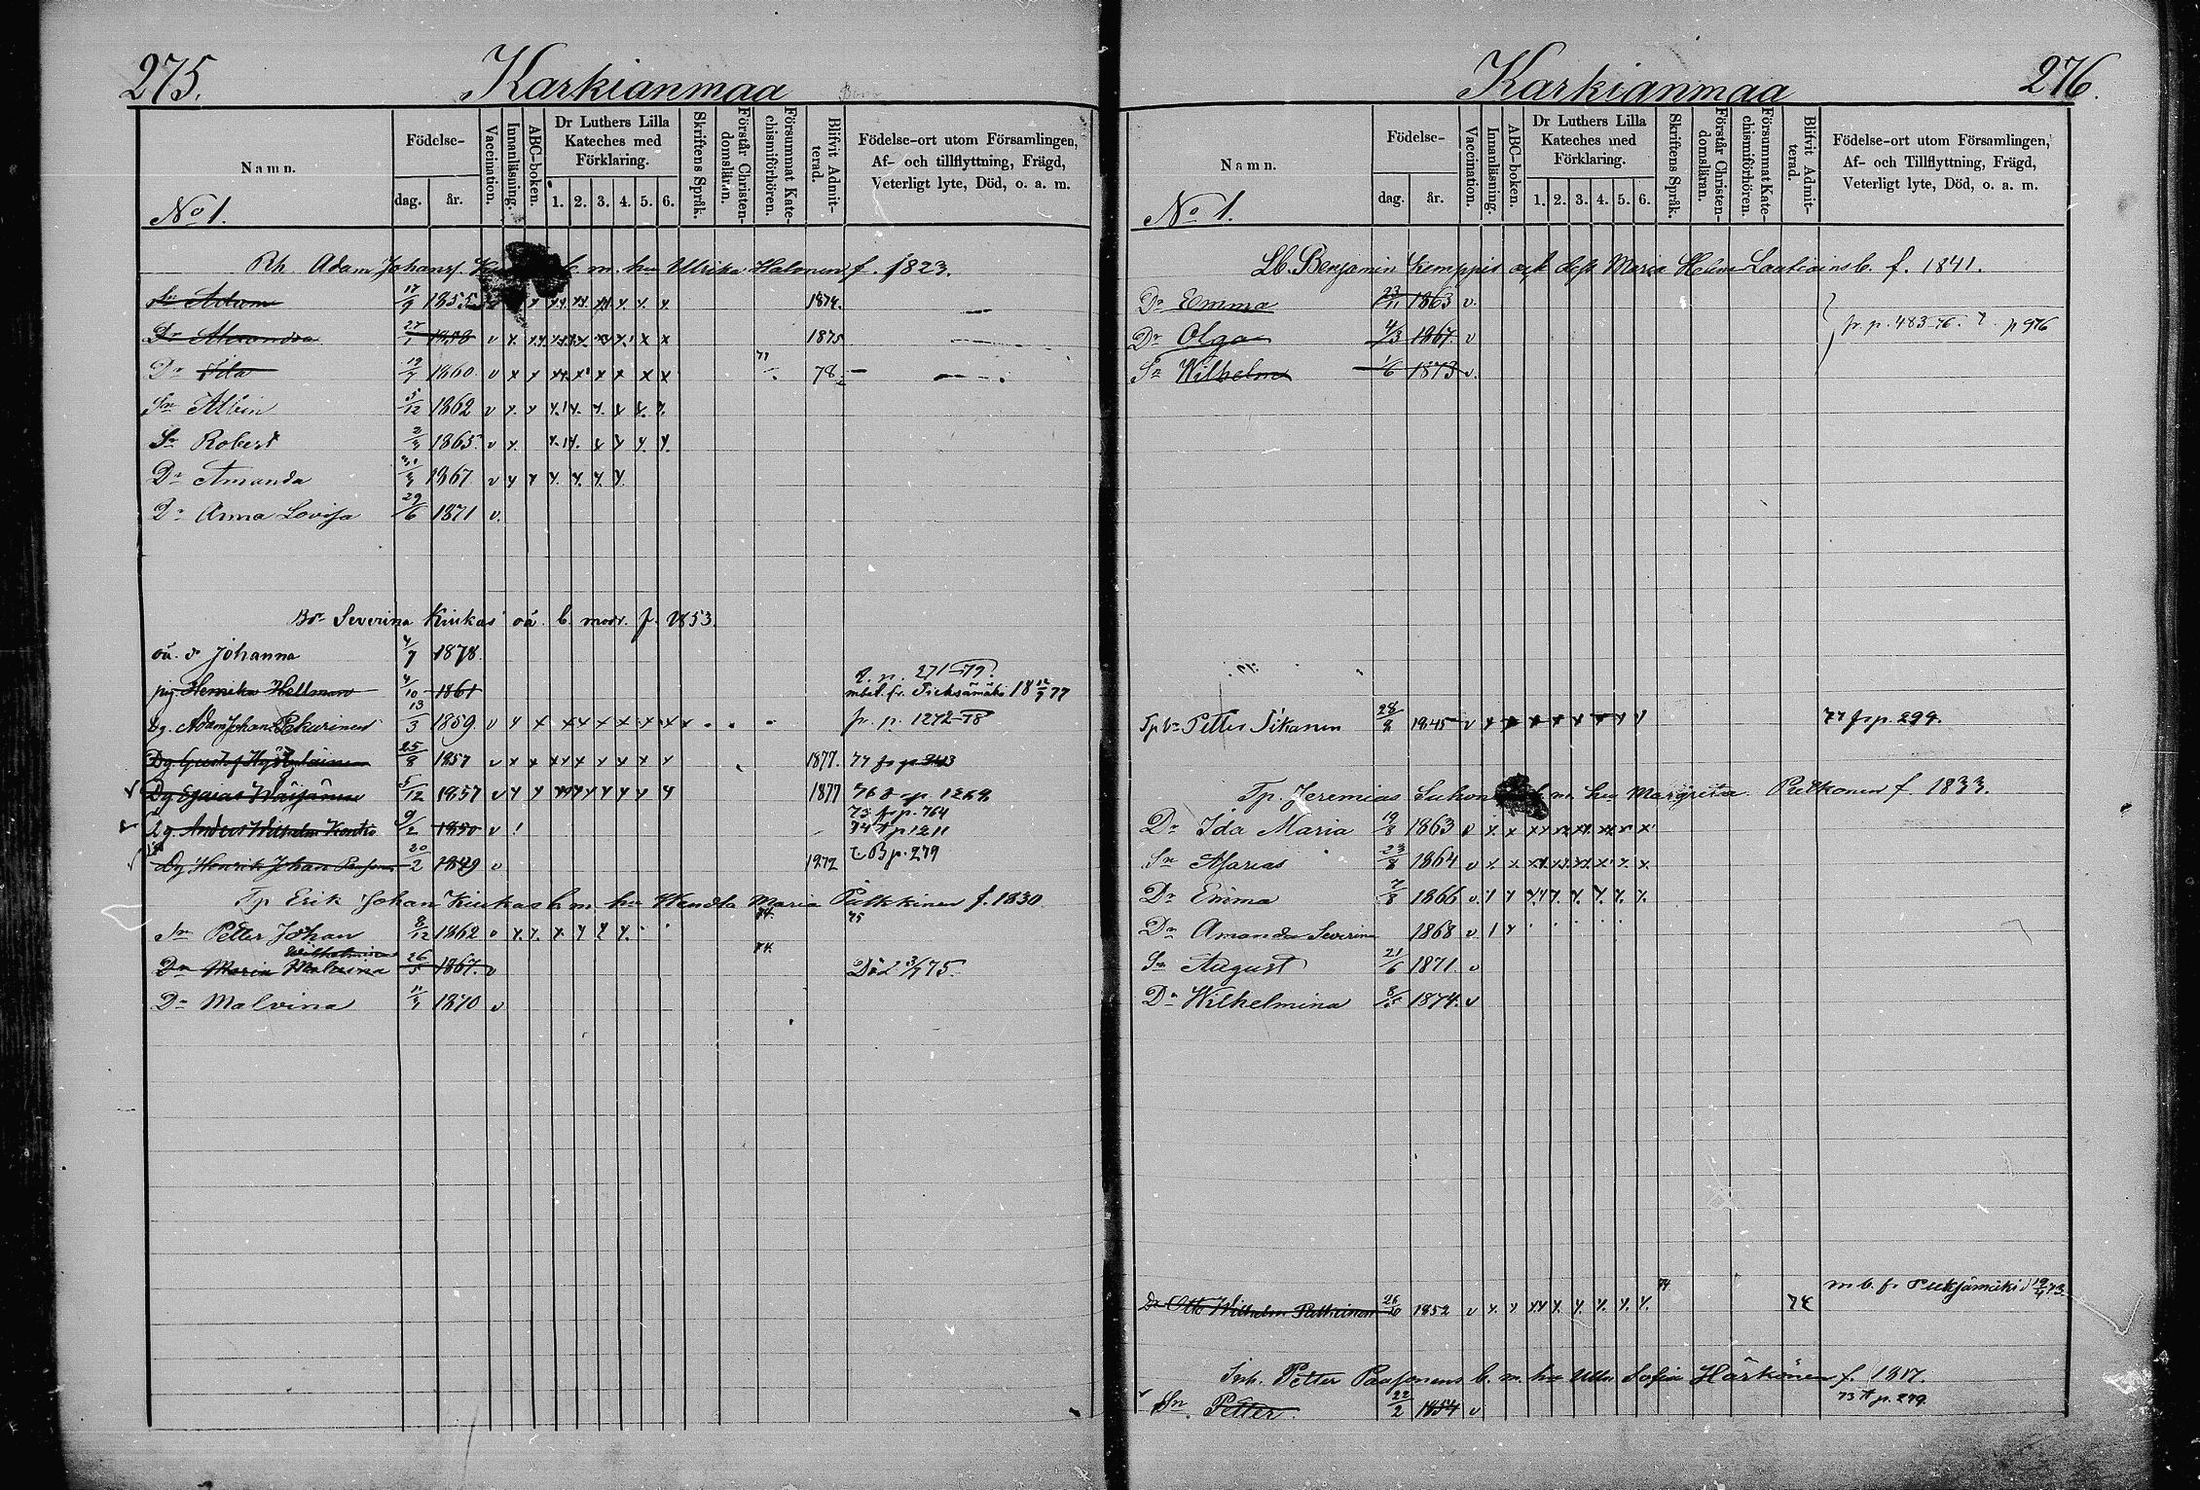 275.
Karkianmaa
Namn.
Födelse-
dag.
år.
Vaccination.
Innanläsning.
ABC-boken.
Dr Luthers Lilla
Kateches med
Förklaring.
1. 2. 3. 4. 5. 6.
Skriftens Språk.
Förstår Christen-
domsläran.
Försummat Kate-
chismiförhören.
Blifvit Admit-
terad.
Födelse-ort utom Församlingen,
Af- och tillflyttning, Frägd,
Veterligt lyte, Död, o. a. m.
No 1.
Rh Adam Johansf. b. m. hu Ulrika Halonen f. 1823.
Sn Adam 17/9 1855 1874.
Dr Alexandra 27/1 v 1875
Dr Ida 19/7 1860 v 77 78
Sn Albin 5/12 1862 v
Sn Robert 1865 v
Dr Amanda 1867 v
Dr Anna Lovisa 29/6 1871 v.
Severina Kiukas oä. b. modr. f. 1853.
oä. d Johanna 4/7 1878
p. 271-79.
pig. Henrika Hellman 4/10 1861 mbet. fr. Pieksämäki 18 12/9 77
Dg. Adam Johan Pekurinen 13/3 1859 v fr. p. 1272-78
Dg Gustaf 25/8 1857 v 1877. 77 fr p 243
Dg Esaias Wäisänen 5/12 1857 v 1877 76 p 1269
73 fr p. 764
Dg. Anders Wilhelm Kontio 9/2 1850 v 74 p 1211
t. B p. 279
Dg Henrik Johan 20/2 1849 v 1872
Tp Erik Johan Kiukas b. m. hu Wendla Maria Pulkkinen f. 1830
Sn Petter Johan 8/12 1862 74 75
Wilhelmina
Dr Maria Malvina 26/5 1867 v 74 Död 3/7 75.
Dr Malvina 1870 v
Karkianmaa
276.
Namn.
Födelse-
dag.
år.
Vaccination.
Innanläsning.
ABC-boken.
Dr Luthers Lilla
Kateches med
Förklaring.
1. 2. 3. 4. 5. 6.
Skriftens Språk.
Förstår Christen-
domsläran.
Försummat Kate-
chismiförhören.
Blifvit Admit-
terad.
Födelse-ort utom Församlingen,
Af- och Tillflyttning, Frägd,
Veterligt lyte, Död, o. a. m.
No 1.
Lb. Benjamin Kemppis och dess Maria Helena f. 1841.
Dr Emma 23/11 1863 v.
Dr Olga 4/3 1867 v fr. p. 483-76. p 976
Sn Wilhelm 1/6 1873 v.
Petter Tikanen 28/2 1845 v 77 fr p. 299.
Tp. Jeremias b. m. hu Margreta Pulkonen f 1833.
Dr Ida Maria 19/8 1863
Sn 23/8 1864 v
Dr Emma 7/8 1866 v
Dr Amanda Severina 1868 v
Sn August 21/6 1871 v
Dr Wilhelmina 1874. v
74 m b. fr Pieksämäki 19/4 73.
Otto Wilhelm 26/10 1852 v 74
Inh. Petter Paasonens b. m. hu Ulla Sofia Härkönen f. 1817.
Sn Petter 22/2 1854 v 73 p. 279